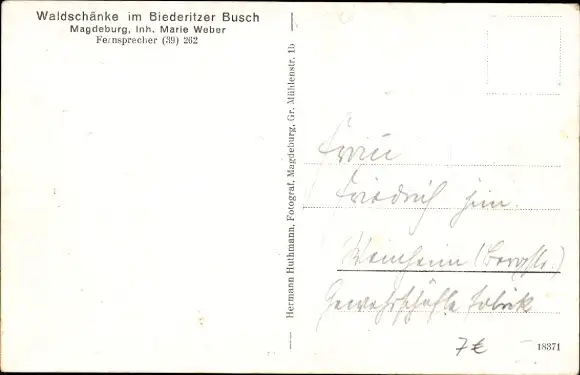 Waldschänke im Biederitzer Busch
Magdeburg, Inh. Marie Weber
Fernsprecher (39) 262
Hermann Huthmann, Fotograf, Magdeburg, Gr. Mühlenstr. 1b
Frau
Friedrich jun.
Weinheim (Bergstr.)
7€
18371